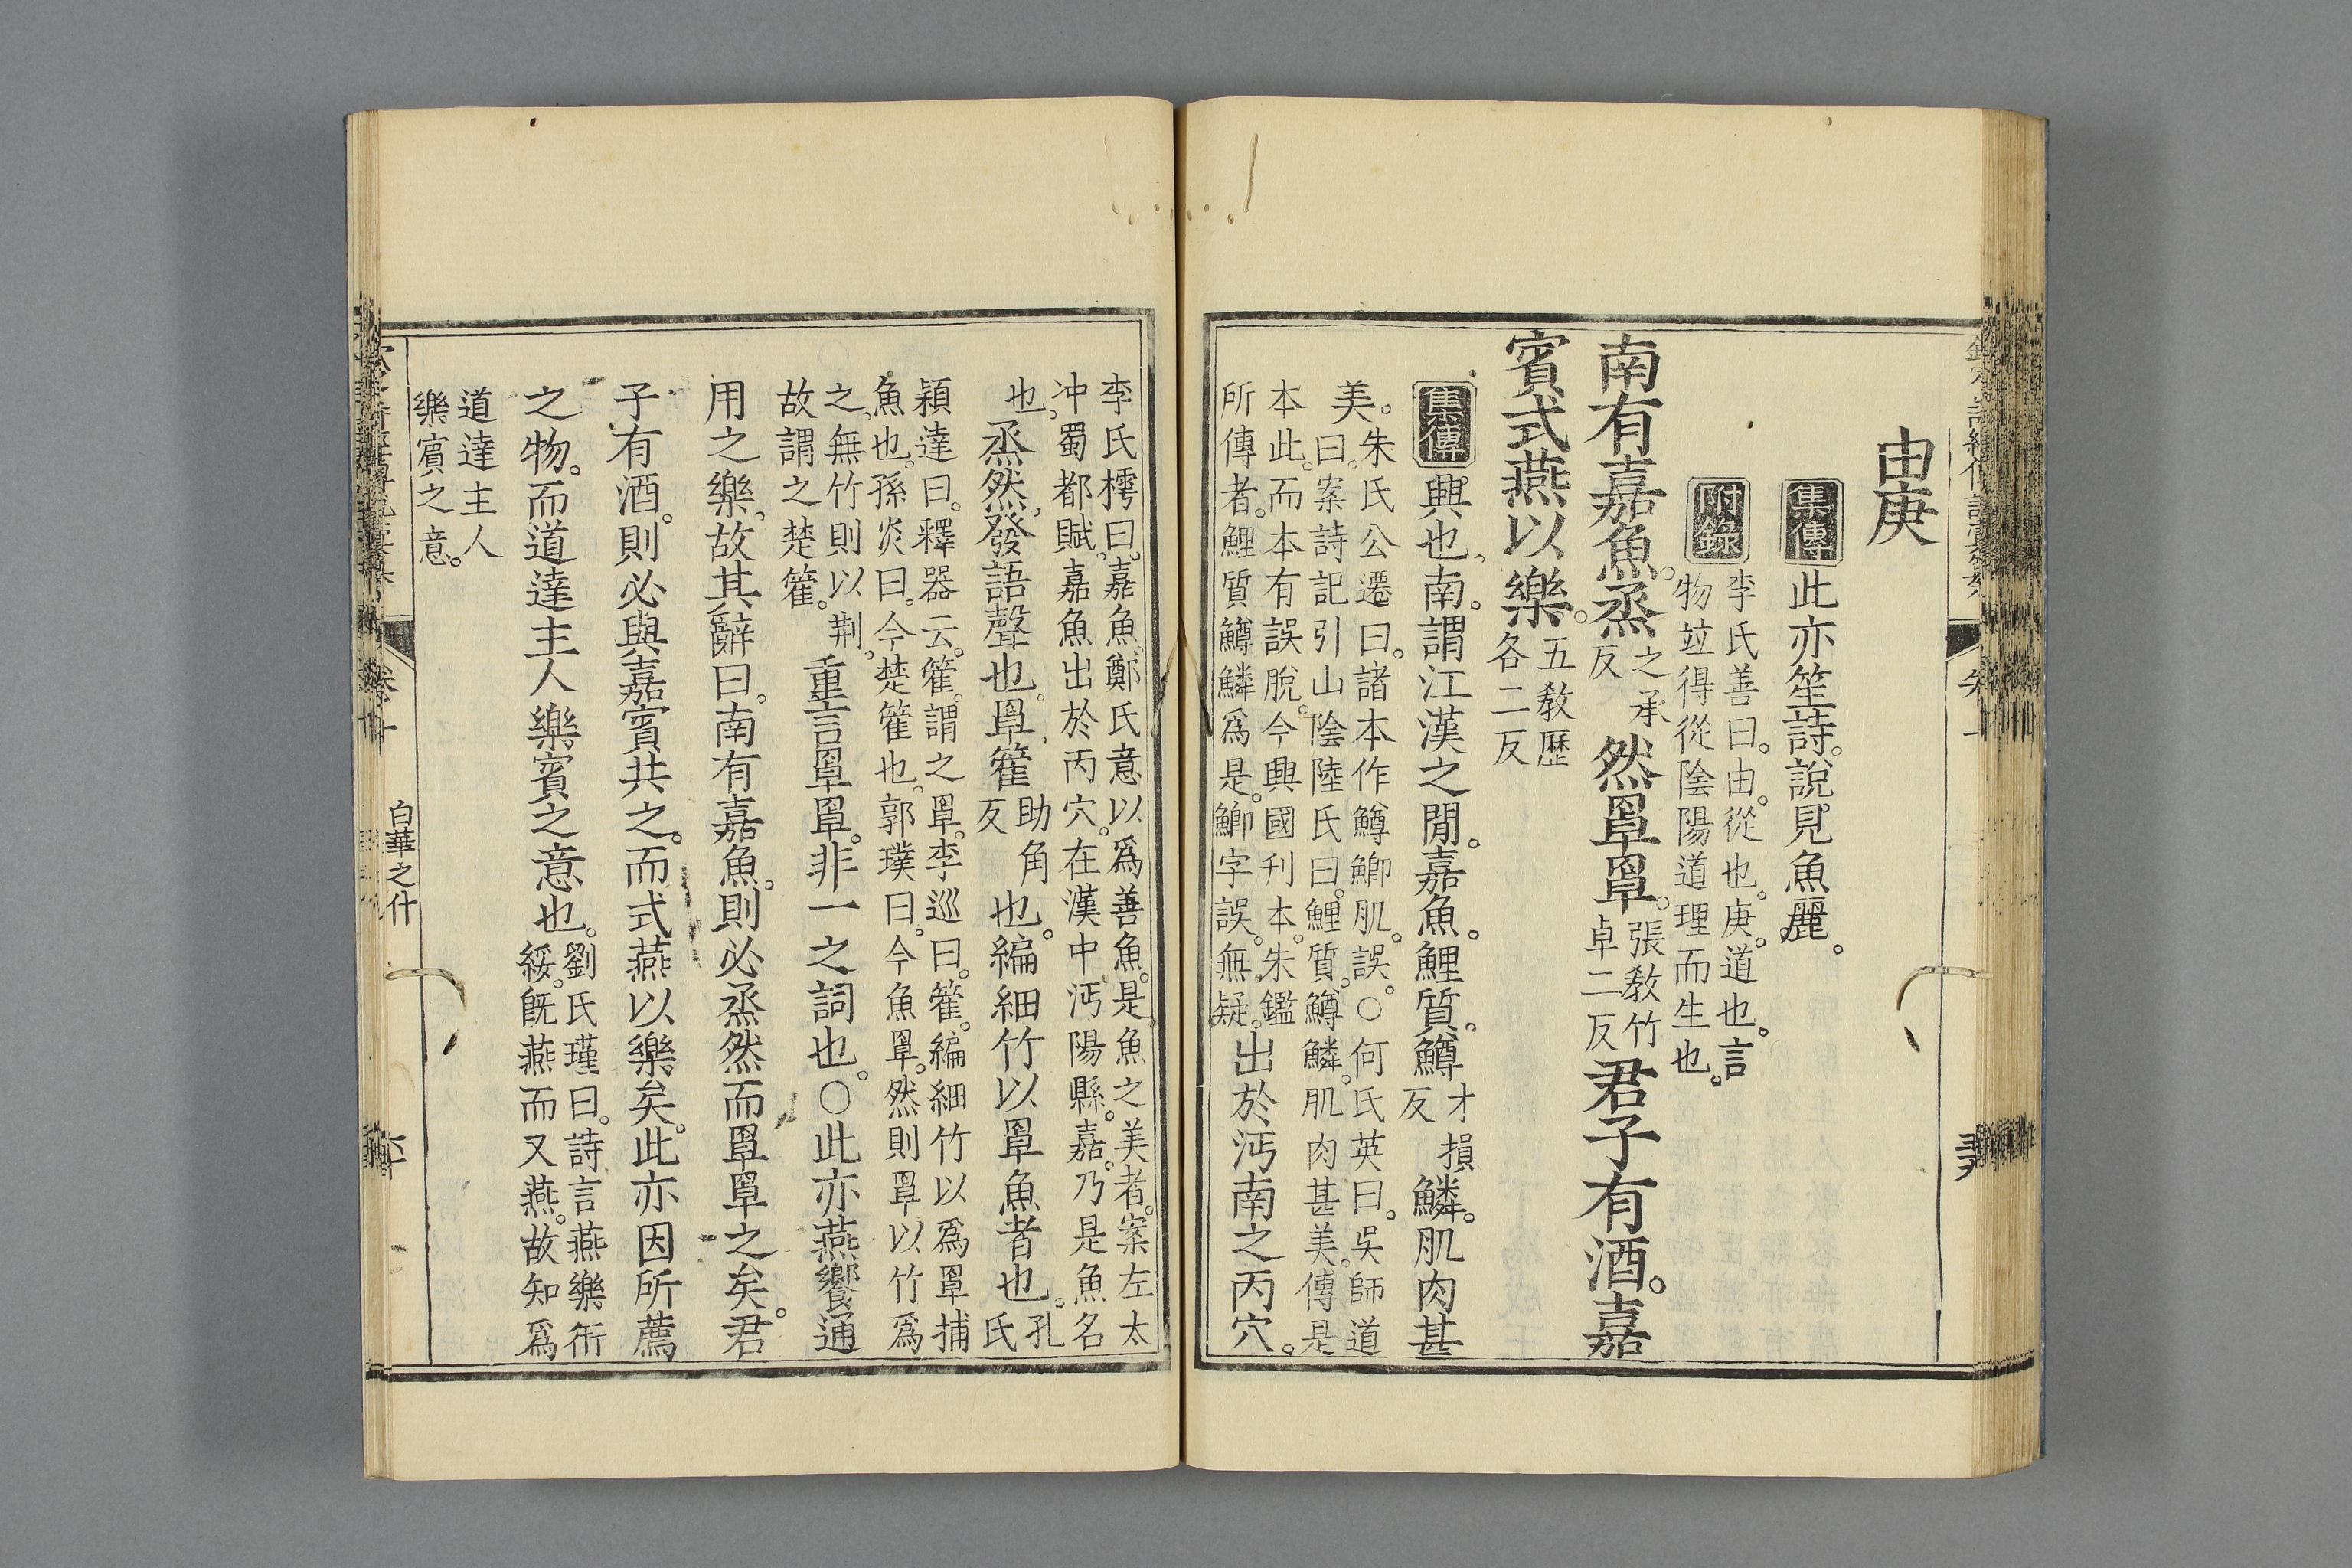 由庚
集傳
此亦笙詩。說見魚麗。
附錄
李氏善曰。由。從也。庚。道也。言
物竝得從陰陽道理而生也。
南有嘉魚。烝
之承
反
然罩罩。
張敎竹
卓二反
君子有酒。嘉
賓式燕以樂。
五敎歷
各二反
集傳
興也、南。謂江漢之閒。嘉魚。鯉質、鱒
才損
反
鱗。肌肉甚
美。朱氏公遷曰。諸本作鱒鯽肌。誤。○何氏英曰。吳師道
曰。案詩記引山陰陸氏曰。鯉質。鱒鱗。肌肉甚美。傳是
本此。而本有誤脫。今興國刋本。朱鑑
所傳者。鯉質鱒鱗爲是。鯽字誤。無疑。
出於沔南之丙穴。
李氏樗曰。嘉魚。鄭氏意以爲善魚。是魚之美者。案左太
冲蜀都賦。嘉魚出於丙穴。在漢中沔陽縣。嘉。乃是魚名
也。
烝然、發語聲也。罩、籗
助角
反
也。編細竹以罩魚者也。
孔氏
穎達曰。釋器云。籗。謂之罩。李巡曰。籗。編細竹以爲罩捕
魚也。孫炎曰。今楚籗也。郭璞曰。今魚罩。然則罩以竹爲
之。無竹則以荆。
故謂之楚籗。
重言罩罩。非一之詞也。○此亦燕饗通
用之樂。故其辭曰。南有嘉魚。則必烝然而罩罩之矣。君
子有酒。則必與嘉賓共之。而式燕以樂矣。此亦因所薦
之物。而道達主人樂賓之意也。
劉氏瑾曰。詩言燕樂衎
綏。旣燕而又燕。故知爲
道達主人
樂賓之意。
白華之什